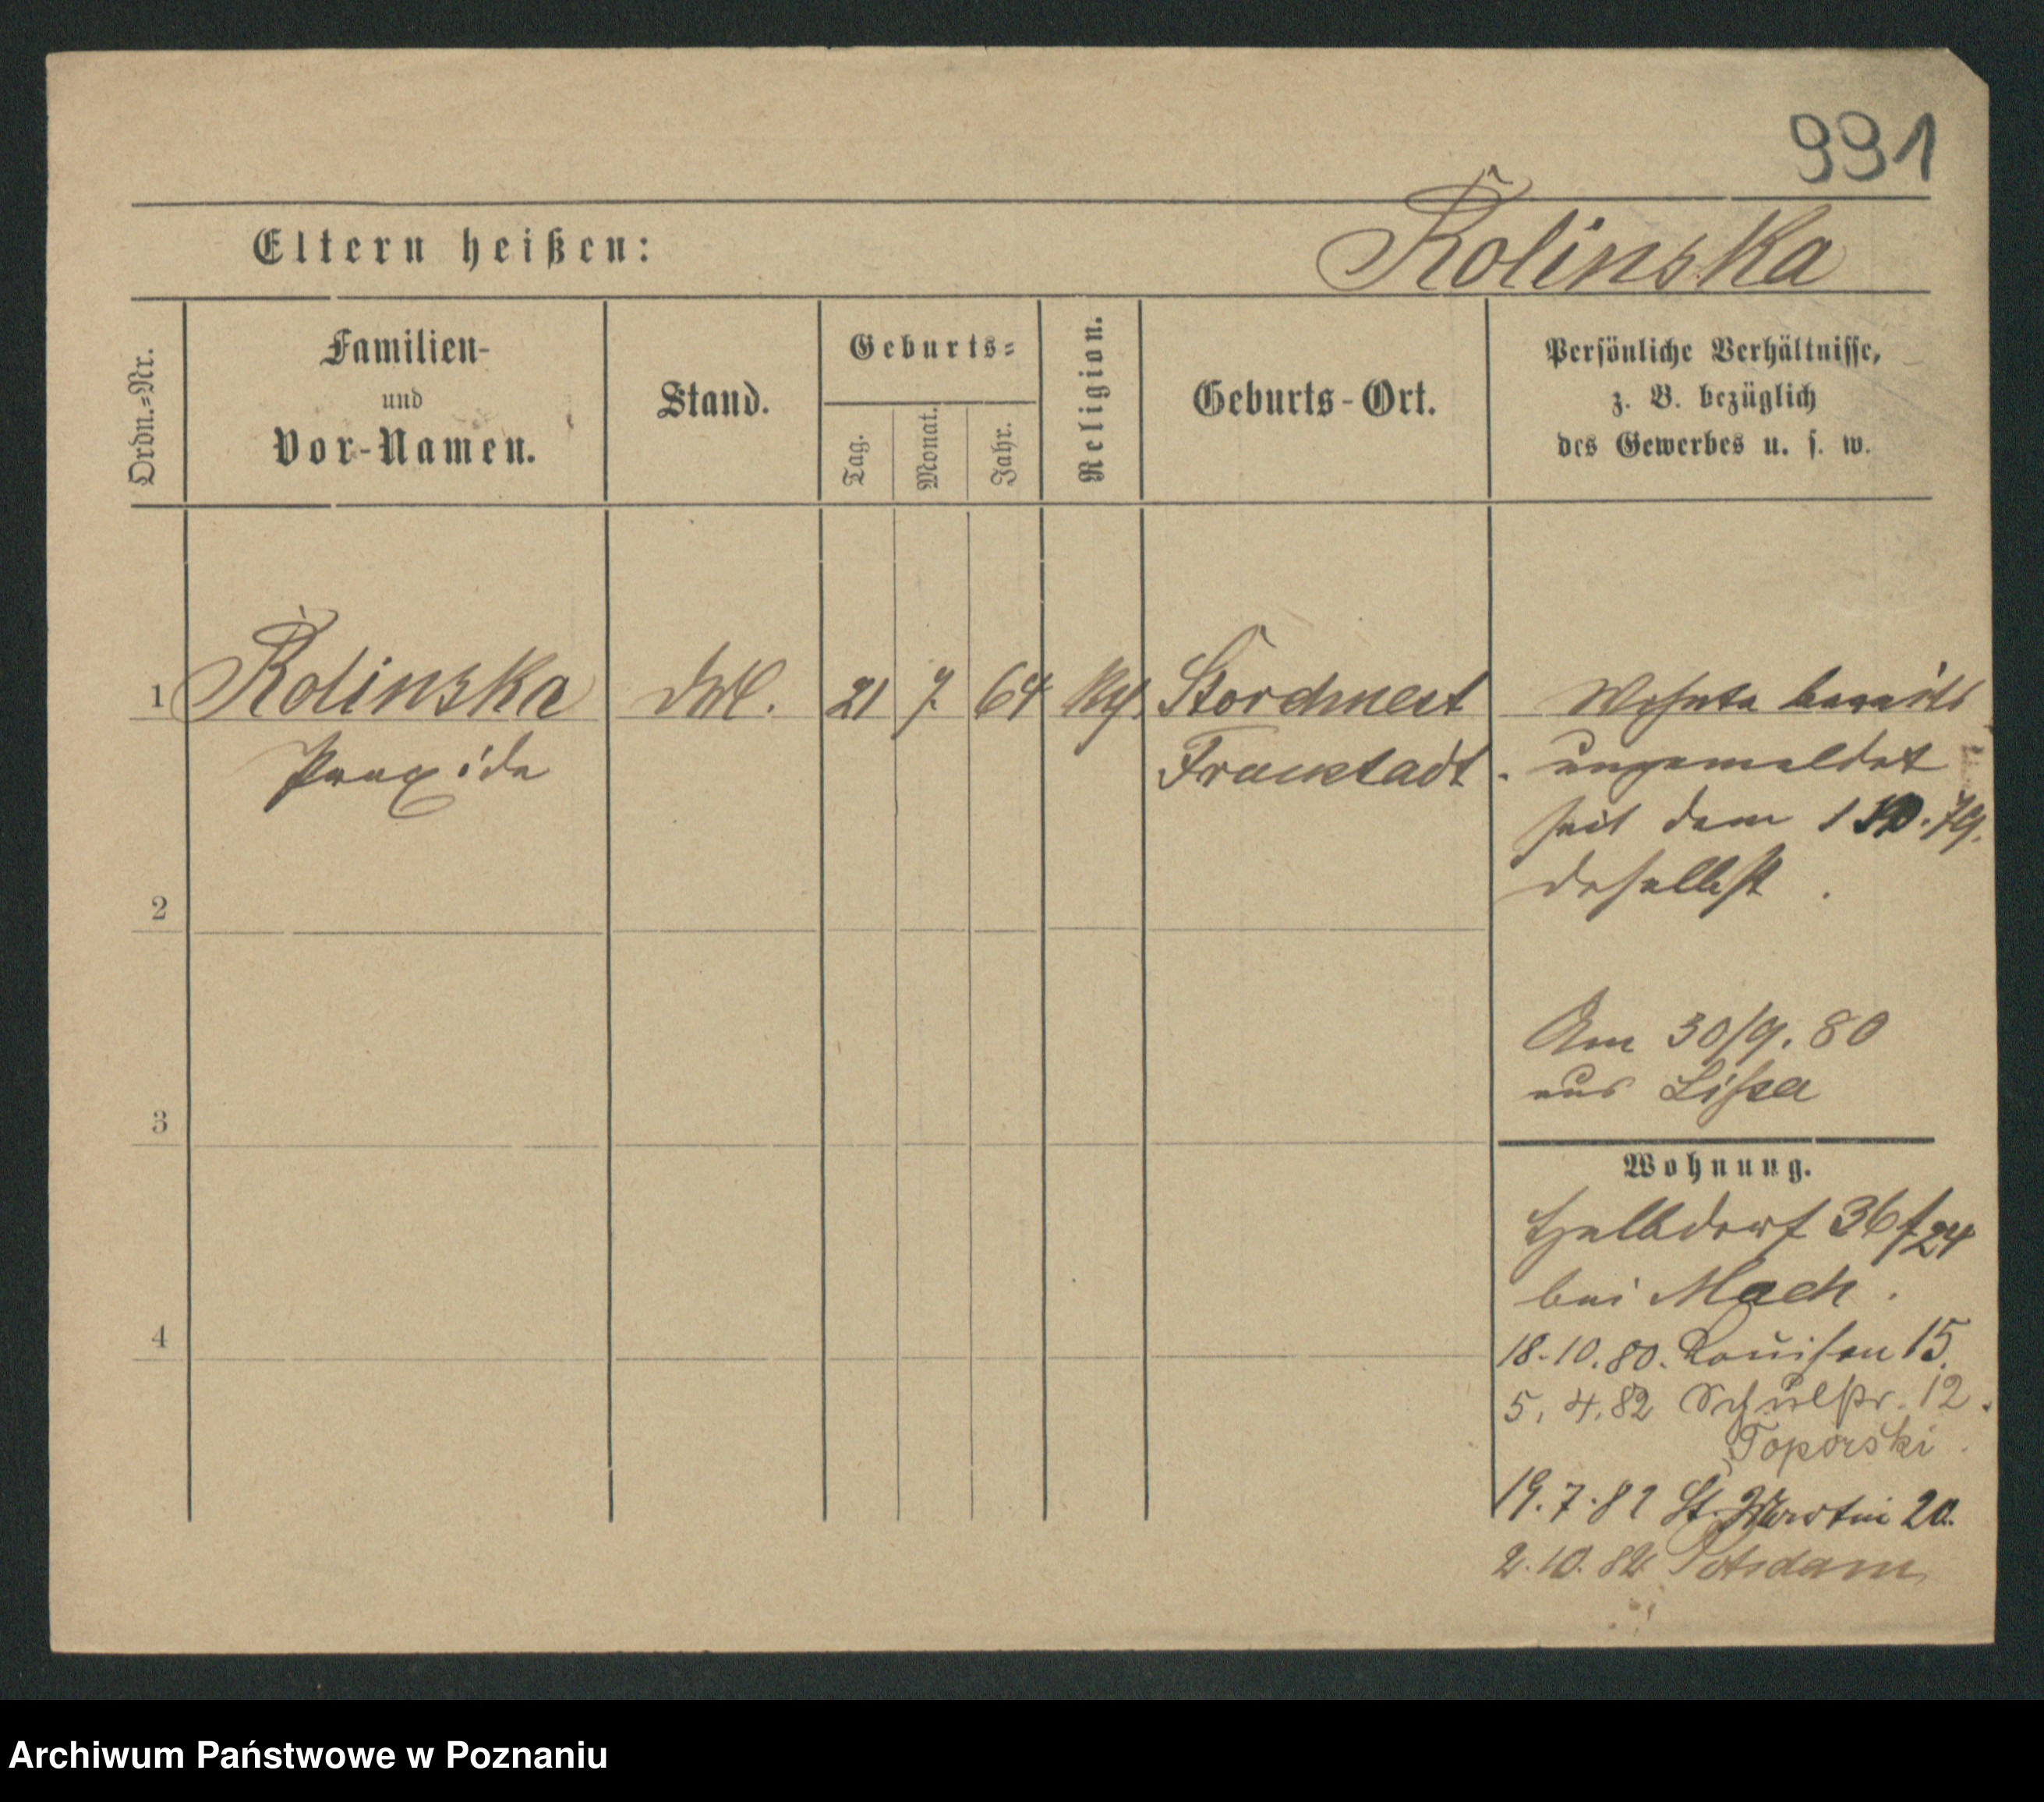 991
Eltern heißen: Rolinska
Ordn.=Nr.
Familien-
und
Vor-Namen.
Stand.
Geburts=
Tag.
Monat.
Jahr.
Religion.
Geburts-Ort.
Persönliche Verhältnisse,
z. B. bezüglich
des Gewerbes u. s. w.
1 Rolinska 21 7. 64 Storchnest Wohnte bereits
Praxida Fraustadt. ungemeldet
seit dem 1 10. 79.
daselbst.
2
Am 30/9. 80
aus Lissa
3
Wohnung.
Halbdorf 36 f 24
bei Mach.
4
18.10.80. Louisen 15.
5. 4. 82 Schulstr. 12.
Toporski.
19. 7. 82 St. Martin 20.
2. 10. 82 Potsdam
Archiwum Państwowe w Poznaniu